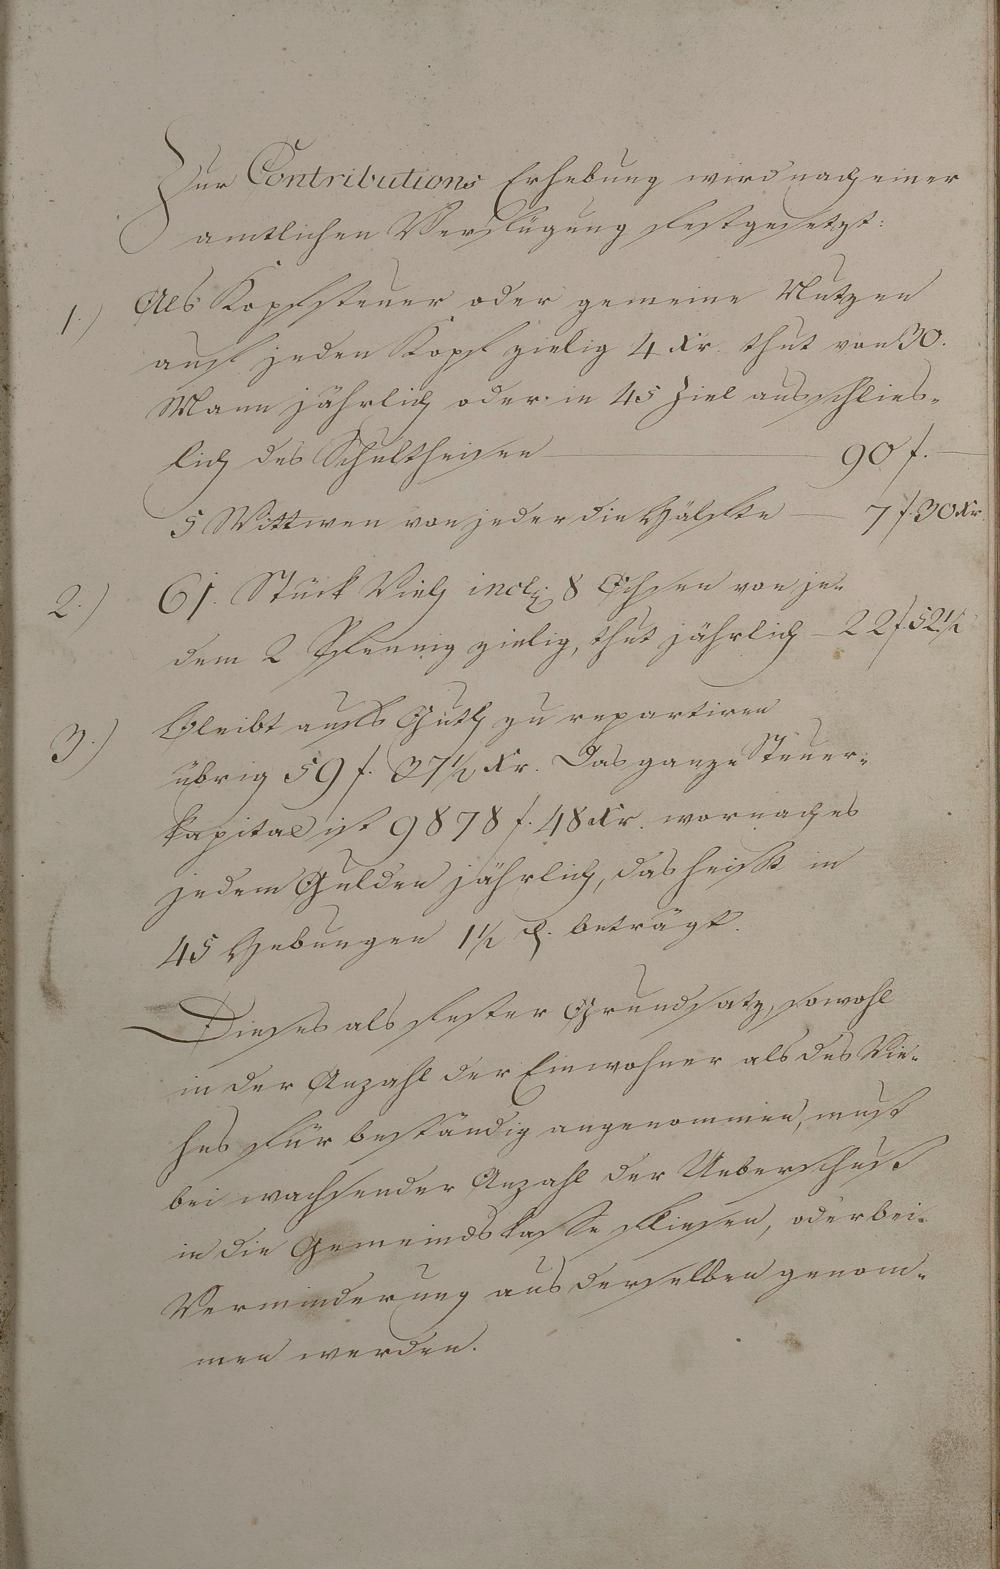 Zur Contributions Erhebung wird nach einer
amtlichen Verfügung festgesetzt:
1.) Als Kopfsteuer oder gemeine Nutzen
auf jeden Kopf zielig 4 Xr. thut von 30.
Mann jährlich oder in 45 Ziel ausschlies-
lich des Schultheisen — 90 f. —
5 Wittwen von jeder die Hälfte — 7 f. 30 Xr.
2.) 61. Stück Vieh incl. 8 Ochsen von je-
dem 2 Pfennig zielig, thut jährlich — 22 f 52 1/2
3.) Bleibt aufs Guth zu repartiren
übrig 59 f. 37 1/2 Xr. Das ganze Steuer-
kapital ist 9878 f. 48 Xr. wornach es
jedem Gulden jährlich, das heißt in
45 Hebungen 1 1/2 ₰. beträgt.
Dieses als fester Grundsatz, sowohl
in der Anzahl der Einwohner als des Vie-
hes für beständig angenommen, muß
bei wachsender Anzahl der Ueberschuß
in die Gemeindskasse fliesen, oder bei-
Verminderung aus derselben genom-
men werden.